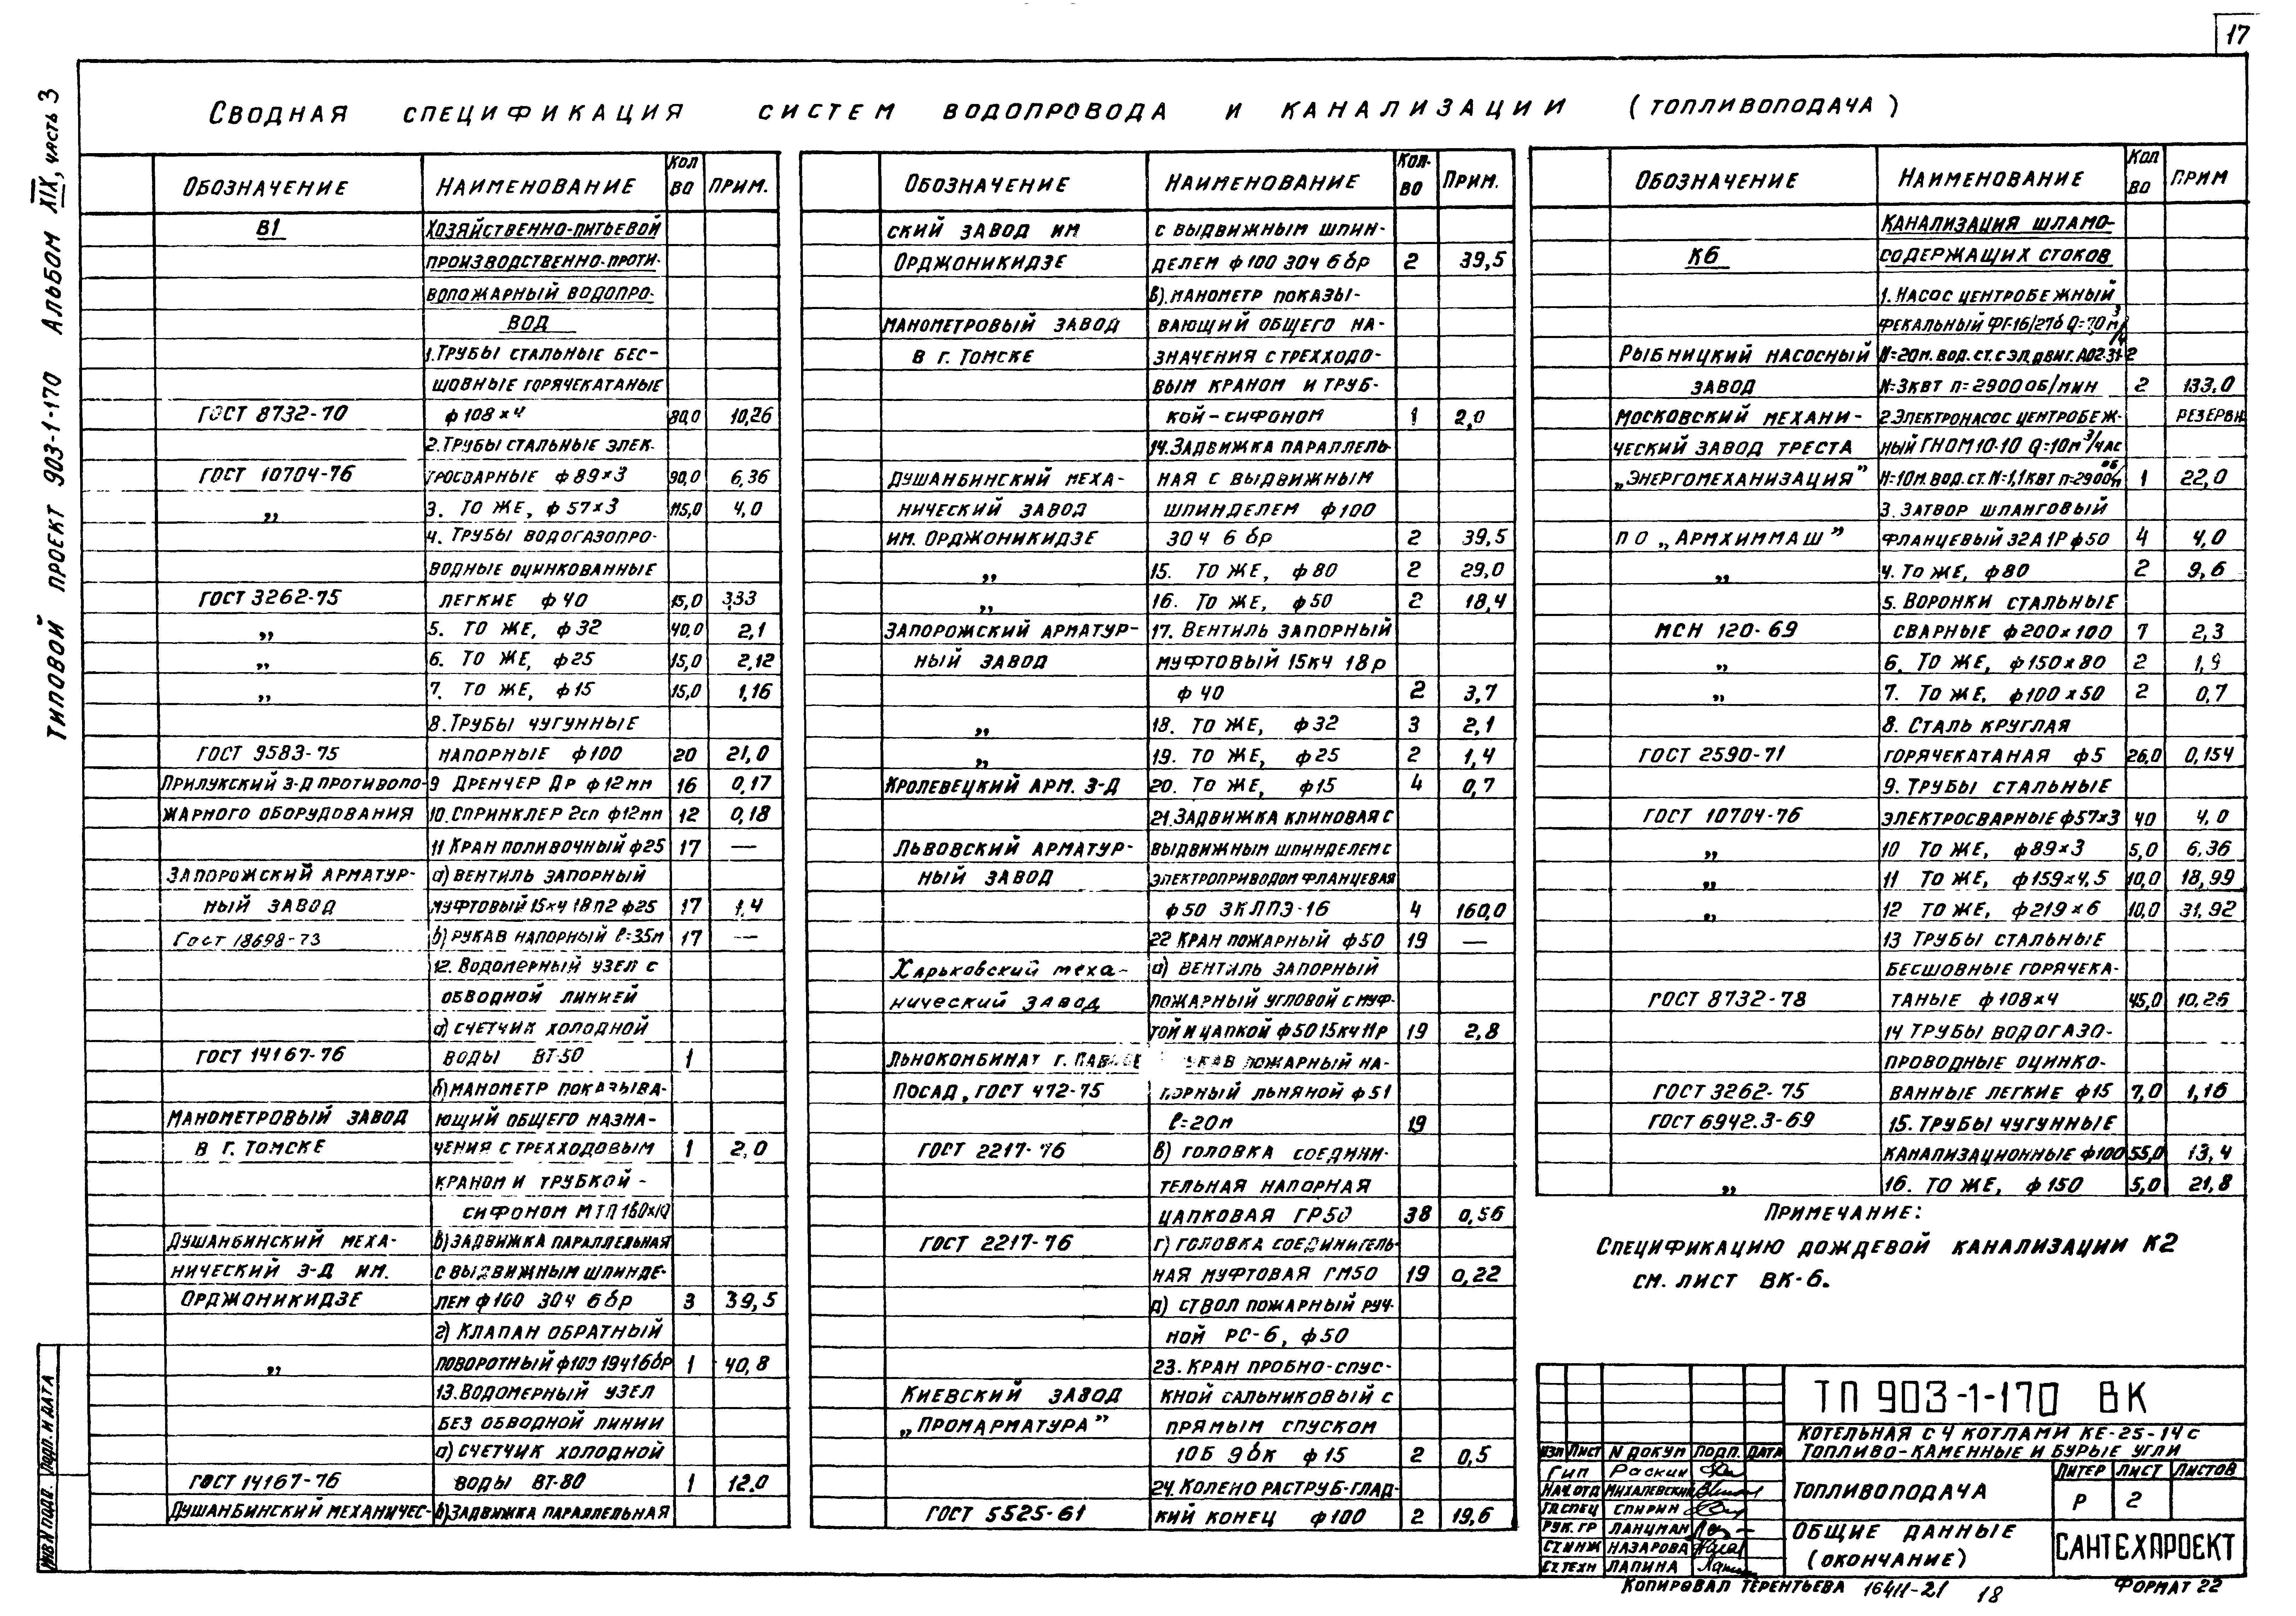 17
Сводная спецификация систем водопровода и канализации (топливоподача)
Типовой проект 903-1-170 Альбом XIX, часть 3
Обозначение Наименование Кол во Прим.
В1 Хозяйственно-питьевой
производственно-проти-
вопожарный водопро-
вод
1. Трубы стальные бес-
шовные горячекатаные
ГОСТ 8732-70 ф108×4 80,0 10,26
2. Трубы стальные элек-
ГОСТ 10704-76 тросварные ф89×3 90,0 6,36
„ 3. То же, ф57×3 115,0 4,0
4. Трубы водогазопро-
водные оцинкованные
ГОСТ 3262-75 легкие ф40 15,0 3,33
„ 5. То же, ф32 40,0 2,1
„ 6. То же, ф25 15,0 2,12
„ 7. То же, ф15 15,0 1,16
8. Трубы чугунные
ГОСТ 9583-75 напорные ф100 20 21,0
Прилукский з-д противопо- 9 Дренчер Др ф12мм 16 0,17
жарного оборудования 10. Спринклер 2сп ф12мм 12 0,18
11 Кран поливочный ф25 17 —
Запорожский арматур- а) вентиль запорный
ный завод муфтовый 15кч 18п2 ф25 17 1,4
Гост 18698-73 б) рукав напорный ℓ=35м 17 —
12. Водомерный узел с
обводной линией
а) счетчик холодной
ГОСТ 14167-76 воды ВТ-50 1
б) манометр показыва-
Манометровый завод ющий общего назна-
в г. Томске чения с трехходовым 1 2,0
краном и трубкой-
сифоном МТП 160×10
Душанбинский меха- в) задвижка параллельная
нический з-д им. с выдвижным шпинде-
Орджоникидзе лем ф100 30ч 6бр 3 39,5
г) Клапан обратный
„ поворотный ф100 19ч16бр 1 40,8
13. Водомерный узел
без обводной линии
а) счетчик холодной
ГОСТ 14167-76 воды ВТ-80 1 12.0
Душанбинский механичес- б) задвижка параллельная
Обозначение Наименование Кол-во Прим.
ский завод им с выдвижным шпин-
Орджоникидзе делем ф100 30ч 6бр 2 39,5
в). манометр показы-
Манометровый завод вающий общего на-
в г. Томске значения с трехходо-
вым краном и труб-
кой-сифоном 1 2,0
14. Задвижка параллель-
Душанбинский меха- ная с выдвижным
нический завод шпинделем ф100
им. Орджоникидзе 30ч 6бр 2 39,5
„ 15. То же, ф80 2 29,0
„ 16. То же, ф50 2 18,4
Запорожский арматур- 17. Вентиль запорный
ный завод муфтовый 15кч 18р
ф40 2 3,7
„ 18. То же, ф32 3 2,1
„ 19. То же, ф25 2 1,4
Кролевецкий арм. з-д 20. То же, ф15 4 0,7
21. Задвижка клиновая с
Львовский арматур- выдвижным шпинделем с
ный завод электроприводом фланцевая
ф50 ЗКЛПЭ-16 4 160,0
22 Кран пожарный ф50 19 —
Харьковский меха- а) вентиль запорный
нический завод пожарный угловой с муф-
той и цапкой ф50 15кч 11р 19 2,8
Льнокомбинат г. пожарный на-
Посад, ГОСТ 472-75 порный льняной ф51
ℓ=20м 19
ГОСТ 2217-76 в) головка соедини-
тельная напорная
цапковая ГР50 38 0,56
ГОСТ 2217-76 г) головка соединитель-
ная муфтовая ГМ50 19 0,22
д) ствол пожарный руч-
ной РС-6, ф50
23. Кран пробно-спус-
Киевский завод кной сальниковый с
„Промарматура” прямым спуском
10Б 9бк ф15 2 0,5
24. Колено раструб-глад-
ГОСТ 5525-61 кий конец ф100 2 19,6
Обозначение Наименование Кол во Прим
Канализация шламо-
К6 содержащих стоков
1. Насос центробежный
фекальный ФГ-16/27б Q=7,0 м³/ч
Рыбницкий насосный Н=20м. вод. ст. с эл. двиг. А02-31-2
завод N=3квт n=2900об/мин 2 133,0
Московский механи- 2. Электронасос центробеж- резервн
ческий завод треста ный ГНОМ 10-10 Q=10м³/час
„Энергомеханизация” Н=10м. вод. ст. N=1,1квт n=2900 об/м 1 22,0
3. Затвор шланговый
ПО „Армхиммаш” фланцевый 32А1Р ф50 4 4,0
„ 4. То же, ф80 2 9,6
5. Воронки стальные
МСН 120-69 сварные ф200×100 7 2,3
„ 6. То же, ф150×80 2 1,9
„ 7. То же, ф100×50 2 0,7
8. Сталь круглая
ГОСТ 2590-71 горячекатаная ф5 26,0 0,154
9. Трубы стальные
ГОСТ 10704-76 электросварные ф57×3 40 4,0
„ 10 То же, ф89×3 5,0 6,36
„ 11 То же, ф159×4,5 10,0 18,99
„ 12 То же, ф219×6 10,0 31,92
13 Трубы стальные
бесшовные горячека-
ГОСТ 8732-78 таные ф108×4 45,0 10,26
14 Трубы водогазо-
проводные оцинко-
ГОСТ 3262-75 ванные легкие ф15 7,0 1,16
ГОСТ 6942.3-69 15. Трубы чугунные
канализационные ф100 55,0 13,4
„ 16. То же, ф150 5,0 21,8
Примечание:
Спецификацию дождевой канализации К2
см. лист ВК-6.
ТП 903-1-170 ВК
Котельная с 4 котлами КЕ-25-14с
Топливо-каменные и бурые угли
Изм Лист N докум Подп. Дата
Гип Раскин
Нач. отд Михалевский
Гл. спец Спирин
Рук. гр Ланцман
Ст. инж Назарова
Ст. техн Лапина
Топливоподача
Литер Лист Листов
Р 2
Общие данные
(окончание)
САНТЕХПРОЕКТ
Копировал Терентьева 16411-21 18 Формат 22
Инв N подл. Подп. и дата